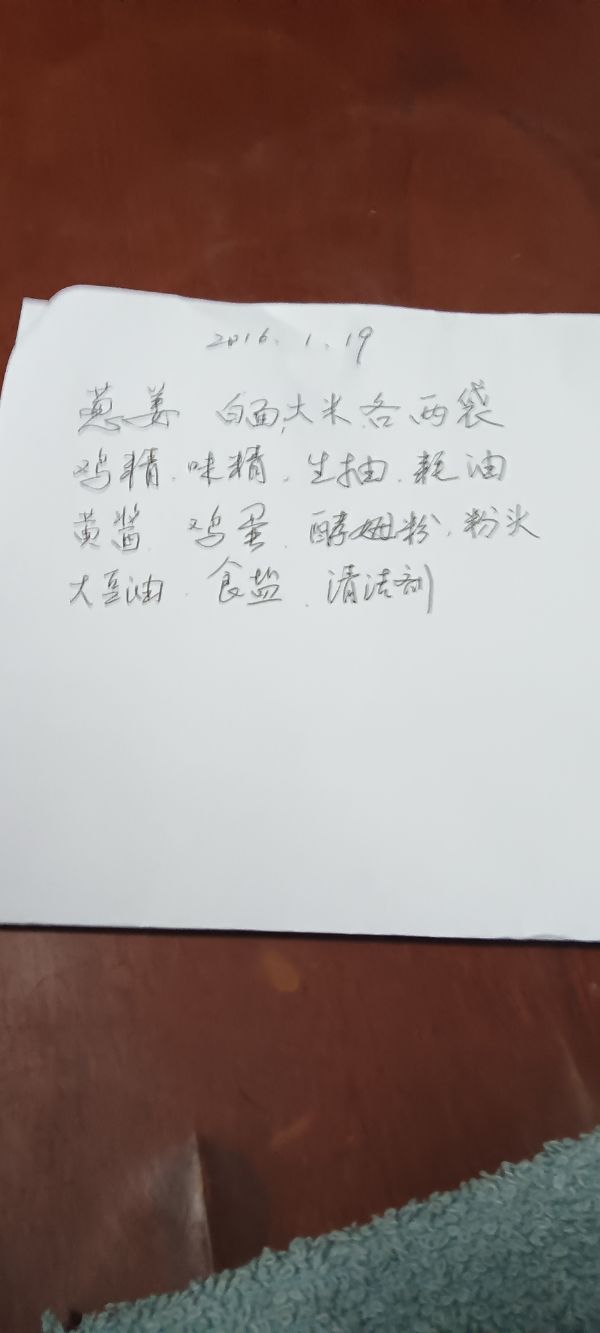 2016.1.19
葱姜 白面,大米,各两袋
鸡精.味精.生抽.耗油
黄酱.鸡蛋.酵母粉.粉头
大豆油.食盐.清洁剂